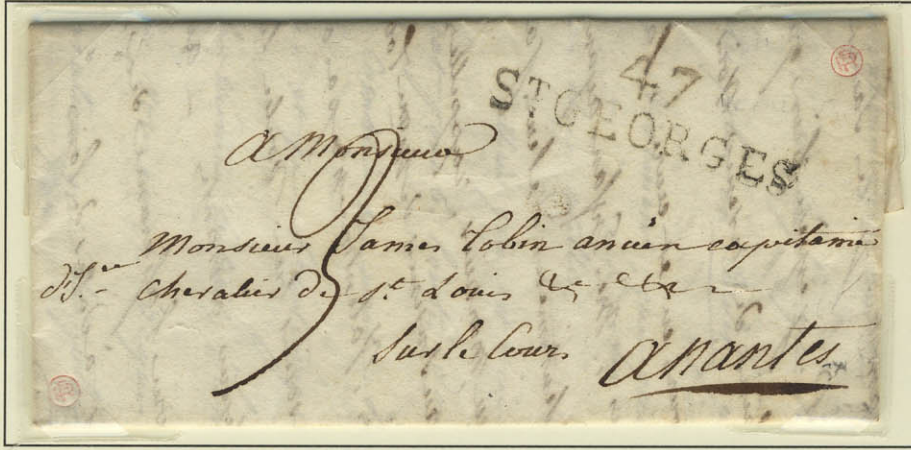 47
ST GEORGES
A Monsieur
3
Monsieur James Tobin ancien capitaine
chevalier de st. Louis &c &c
sur le Cours
A nantes